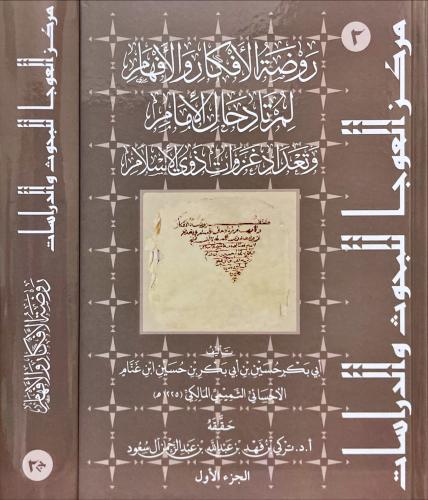 ٢
مركز العوجا للبحوث والدراسات
روضة الأفكار والأفهام
لمرتاد حال الإمام
وتعداد غزوات ذوي الإسلام
تأليف
أبي بكر حسين بن أبي بكر بن حسين ابن غنام
الأحسائي التميمي المالكي (١٢٢٥هـ)
حققه
أ.د. تركي بن فهد بن عبدالله بن عبدالرحمن آل سعود
الجزء الأول
مركز العوجا للبحوث والدراسات
روضة الأفكار والأفهام